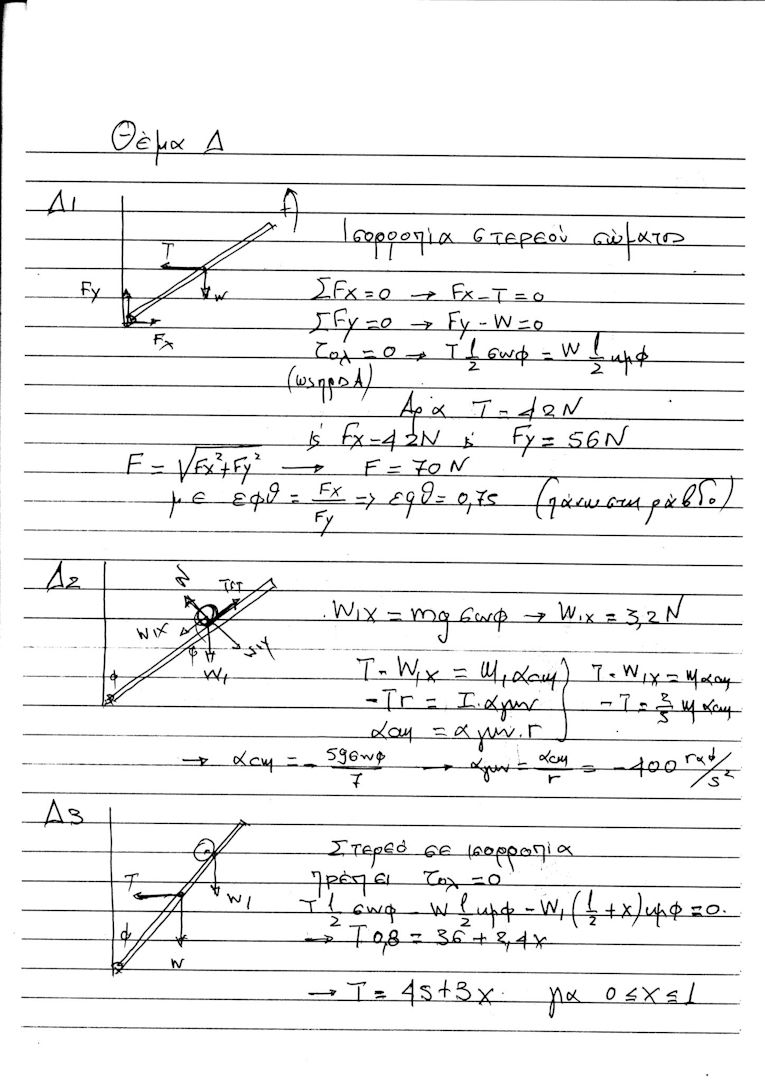 Θέμα Δ
Δ1
Ισορροπία στερεού σώματος
T
Fy
W
Fx
ΣFx=0 → Fx-T=0
ΣFy=0 → Fy-W=0
τολ=0 → T l/2 συνφ = W l/2 ημφ
(ως προς Α)
Άρα T=42N
Fx=42N Fy=56N
F=√Fx²+Fy² → F=70N
με εφθ = Fx/Fy => εφθ=0,75 (πάνω στη ράβδο)
Δ2
N
Tστ
W1x
W1y
φ
φ
W1
W1x=mg συνφ → W1x=3,2N
T-W1x = m1 αcm
-Tr = I.αγων
αcm = αγων.r
T-W1x=m αcm
-T=2/5 m αcm
→ αcm = -5gσυνφ/7 → αγων = αcm/r = -400 rad/s²
Δ3
Στερεό σε ισορροπία
πρέπει τολ=0
T
W1
φ
W
T l/2 συνφ - W l/2 ημφ - W1(l/2+x)ημφ=0.
→ T 0,8 = 36 + 2,4x
→ T = 45+3x. για 0≤x≤1